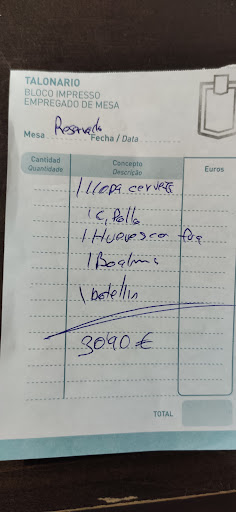 TALONARIO
BLOCO IMPRESSO
EMPREGADO DE MESA
Mesa Reservado Fecha / Data
Cantidad
Quantidade
Concepto
Descrição
Euros
1 Copa cerveza
1 C. Pollo
1 Huevos co
1
1 botellin
3090 €
TOTAL